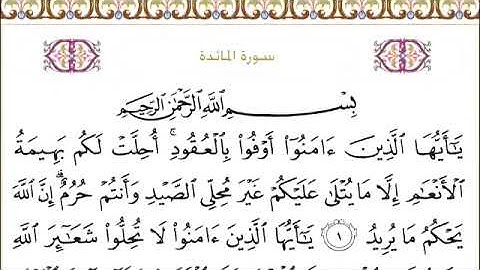 سورة المائدة
بِسْمِ اللَّهِ الرَّحْمَٰنِ الرَّحِيمِ
يَـٰٓأَيُّهَا ٱلَّذِينَ ءَامَنُوٓا۟ أَوْفُوا۟ بِٱلْعُقُودِ ۚ أُحِلَّتْ لَكُم بَهِيمَةُ
ٱلْأَنْعَـٰمِ إِلَّا مَا يُتْلَىٰ عَلَيْكُمْ غَيْرَ مُحِلِّى ٱلصَّيْدِ وَأَنتُمْ حُرُمٌ ۗ إِنَّ ٱللَّهَ
يَحْكُمُ مَا يُرِيدُ ١ يَـٰٓأَيُّهَا ٱلَّذِينَ ءَامَنُوا۟ لَا تُحِلُّوا۟ شَعَـٰٓئِرَ ٱللَّهِ